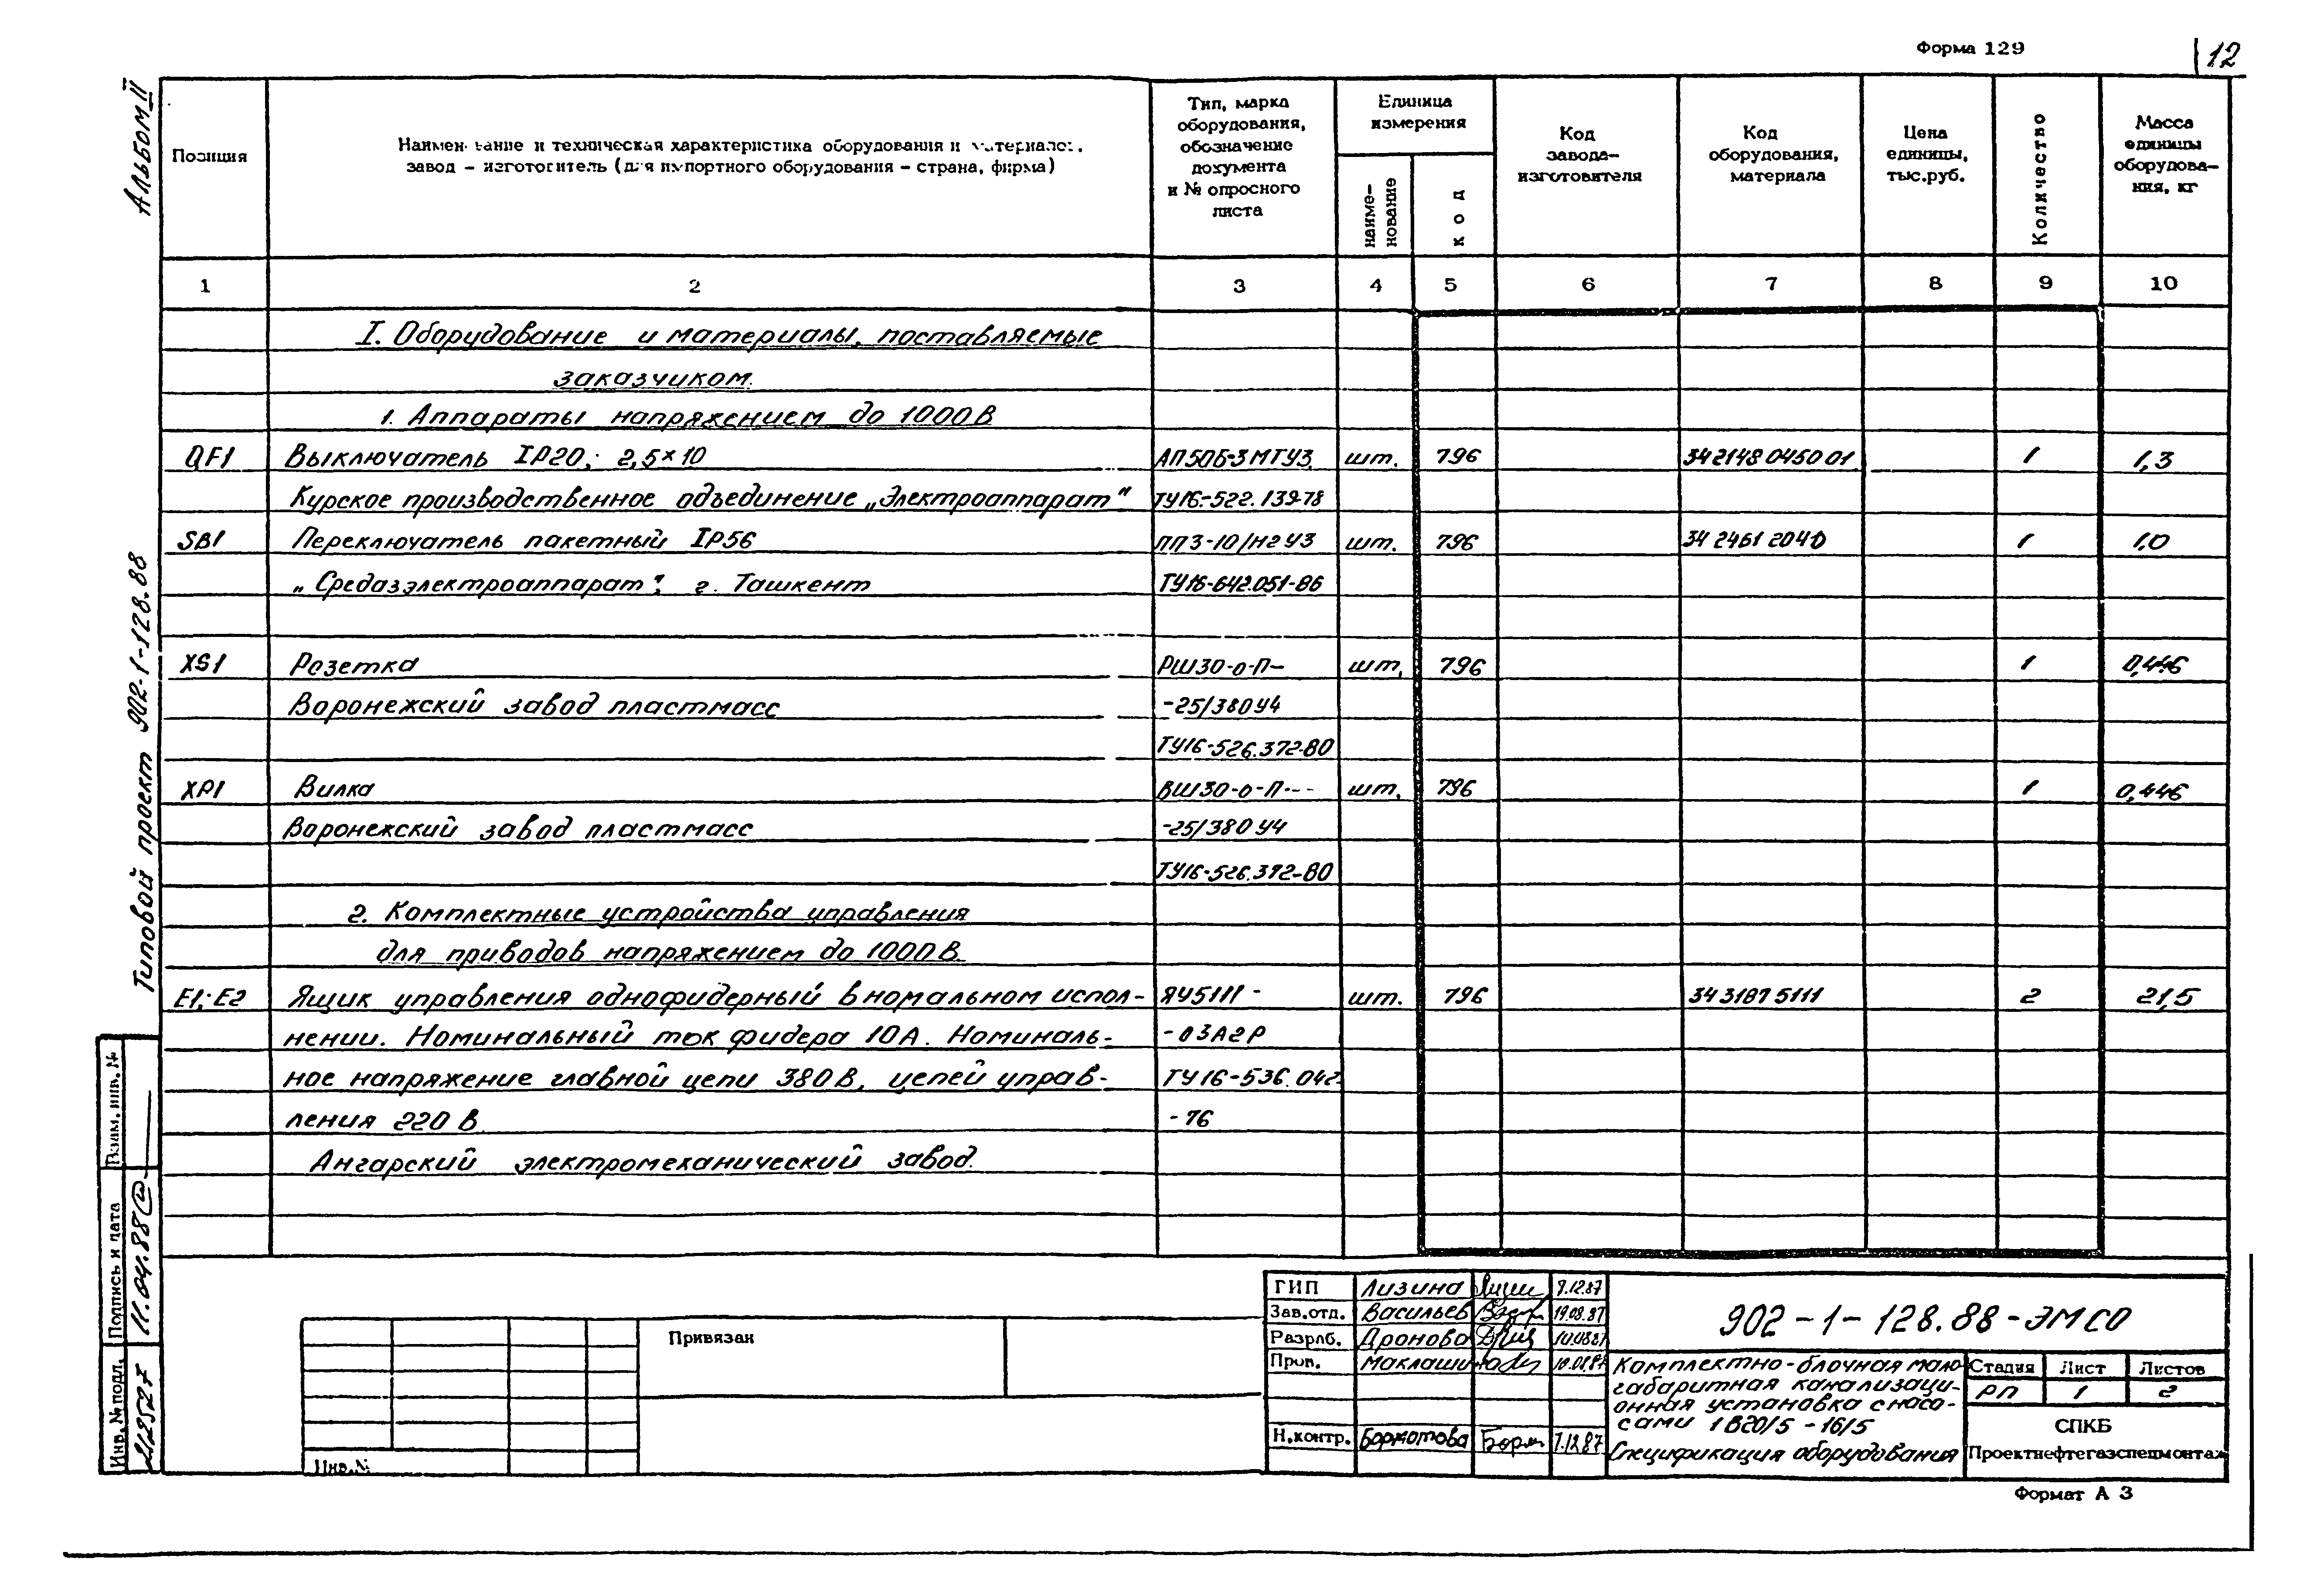 Форма 129
12
Альбом II
Типовой проект 902-1-128.88
Позиция
Наименование и техническая характеристика оборудования и материалов,
завод – изготовитель (для импортного оборудования – страна, фирма)
Тип, марка
оборудования,
обозначение
документа
и № опросного
листа
Единица
измерения
наиме-
нование
код
Код
завода-
изготовителя
Код
оборудования,
материала
Цена
единицы,
тыс.руб.
Количество
Масса
единицы
оборудова-
ния, кг
1 2 3 4 5 6 7 8 9 10
I. Оборудование и материалы, поставляемые
заказчиком.
1. Аппараты напряжением до 1000 В
QF1 Выключатель IP20; 2,5×10 АП50Б-3МТУ3 шт. 796 34 2148 0450 01 1 1,3
Курское производственное объединение „Электроаппарат" ТУ16-522.139-78
SB1 Переключатель пакетный IP56 ПП3-10/Н2 У3 шт. 796 34 2461 2040 1 1,0
„Средазэлектроаппарат", г. Ташкент ТУ16-642.051-86
XS1 Розетка РШ30-0-П- шт. 796 1 0,446
Воронежский завод пластмасс -25/380 У4
ТУ16-526.372-80
XP1 Вилка ВШ30-0-П-- шт. 796 1 0,446
Воронежский завод пластмасс -25/380 У4
ТУ16-526.372-80
2. Комплектные устройства управления
для приводов напряжением до 1000 В.
E1; E2 Ящик управления однофидерный в номальном испол- ЯУ5111- шт. 796 34 3187 5111 2 21,5
нении. Номинальный ток фидера 10А. Номиналь- -03А2Р
ное напряжение главной цепи 380 В, цепей управ- ТУ16-536.042-
ления 220 В -76
Ангарский электромеханический завод.
Взам. инв. №
Подпись и дата
11.04.88
Инв. № подл.
Привязан
Инв. №
ГИП Лизина 7.12.87
Зав.отд. Васильев 19.08.87
Разраб. Дронова
Пров. Маклашина
Н.контр. Бормотова 7.12.87
902-1-128.88-ЭМСО
Комплектно-блочная мало-
габаритная канализаци-
онная установка с насо-
сами 1В20/5-16/5
Спецификация оборудования
Стадия Лист Листов
РП 1 2
СПКБ
Проектнефтегазспецмонтаж
Формат А 3